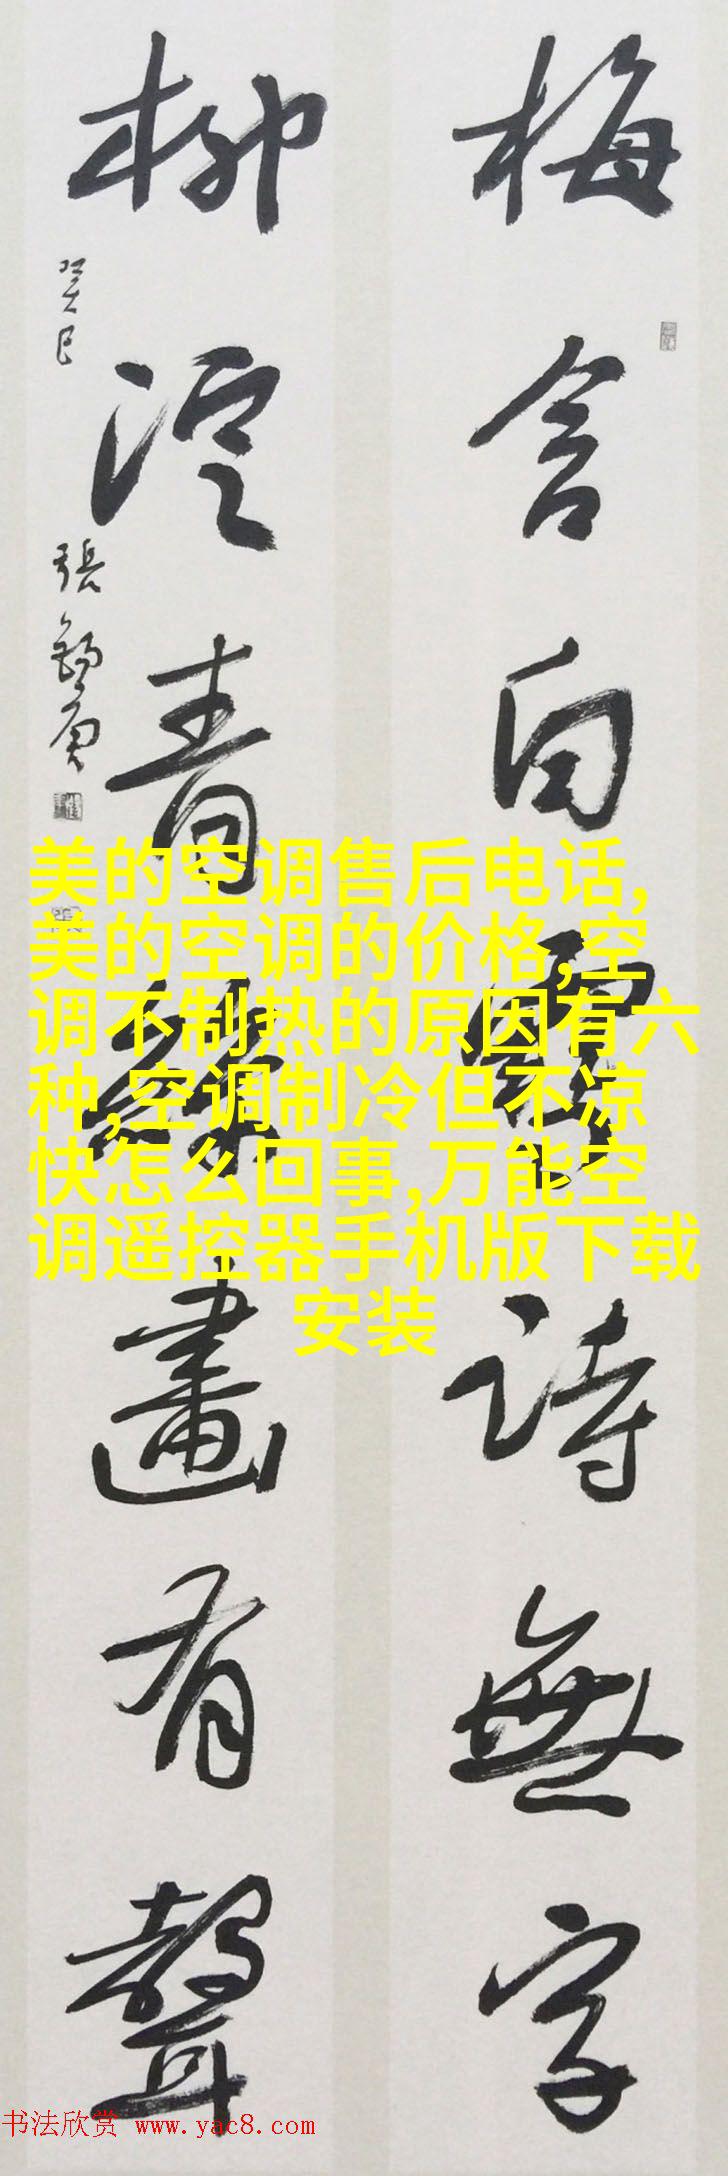 梅含白雪詩無字
柳淀青絲畫有聲
癸巳
張
美的空调售后电话,
美的空调的价格,空
调不制热的原因有六
种,空调制冷但不凉
快怎么回事,万能空
调遥控器手机版下载
安装
书法欣赏 www.yac8.com